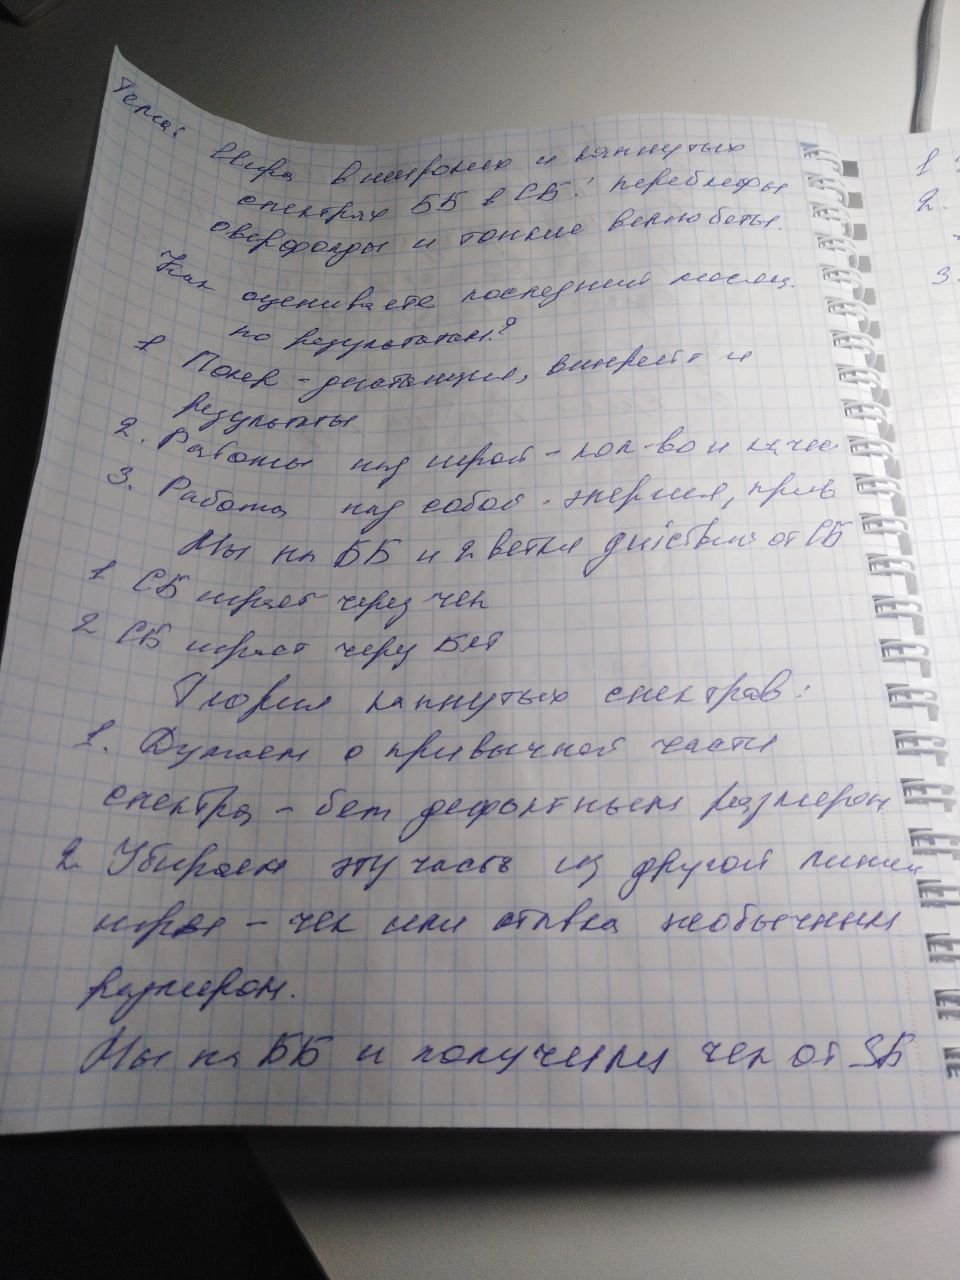 Тема:
Игра в широких и каппутых
спектрах ББ в СБ: переблефы
оверфолды и тонкие велью беты.
Как оцениваете последний месяц
по результатам?
1 Покер - дистанция, винрейт и
результаты
2. Работы над игрой - кол-во и качес
3. Работа над собой - энергия, прив
Мы на ББ и 2 ветки действий от СБ
1 СБ играет через чек
2 СБ играет через бет
Теория каппутых спектров:
1. Думаем о привычной части
спектра - бет дефолтным размером
2. Убираем эту часть из другой линии
игры - чек или ставка необычным
размером.
Мы на ББ и получили чек от SБ
1
2.
3